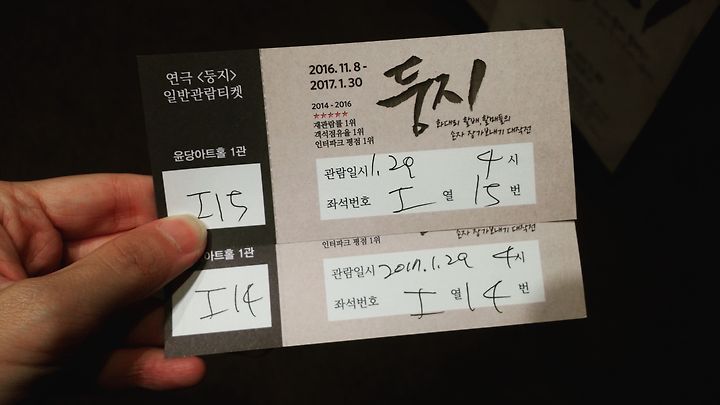 연극 <둥지>
일반관람티켓
윤당아트홀 1관
I15
2016. 11. 8 -
2017. 1. 30
2014 - 2016
★★★★★
재관람률 1위
객석점유율 1위
인터파크 평점 1위
둥지
화대리 할배, 할매들의
손자 장가보내기 대작전
관람일시 1. 29 4 시
좌석번호 I 열 15 번
아트홀 1관
I14
인터파크 평점 1위
손자 장가보내기 대작전
관람일시 2017. 1. 29 4 시
좌석번호 I 열 14 번